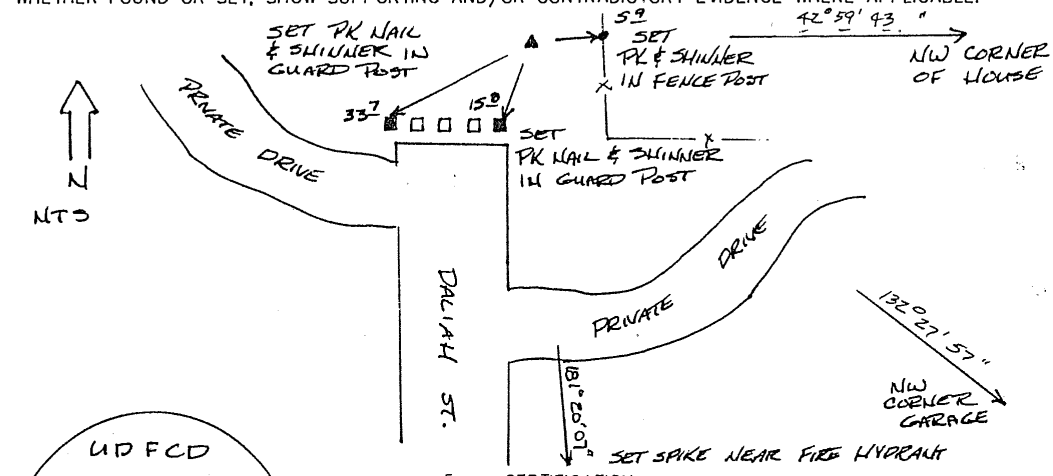 WHETHER FOUND OR SET, SHOW SUPPORTING AND/OR CONTRADICTORY EVIDENCE WHERE APPLICABLE.
SET PK NAIL
& SHINNER IN
GUARD POST
5.9
SET
PK & SHINNER
IN FENCE POST
42° 59' 43 "
NW CORNER
OF HOUSE
33.7
15.0
SET
PK NAIL & SHINNER
IN GUARD POST
X
X
PRIVATE DRIVE
N
NTS
DALIAH ST.
PRIVATE DRIVE
132° 27' 57"
NW
CORNER
GARAGE
181° 20' 07"
SET SPIKE NEAR FIRE HYDRANT
UDFCD
CERTIFICATION